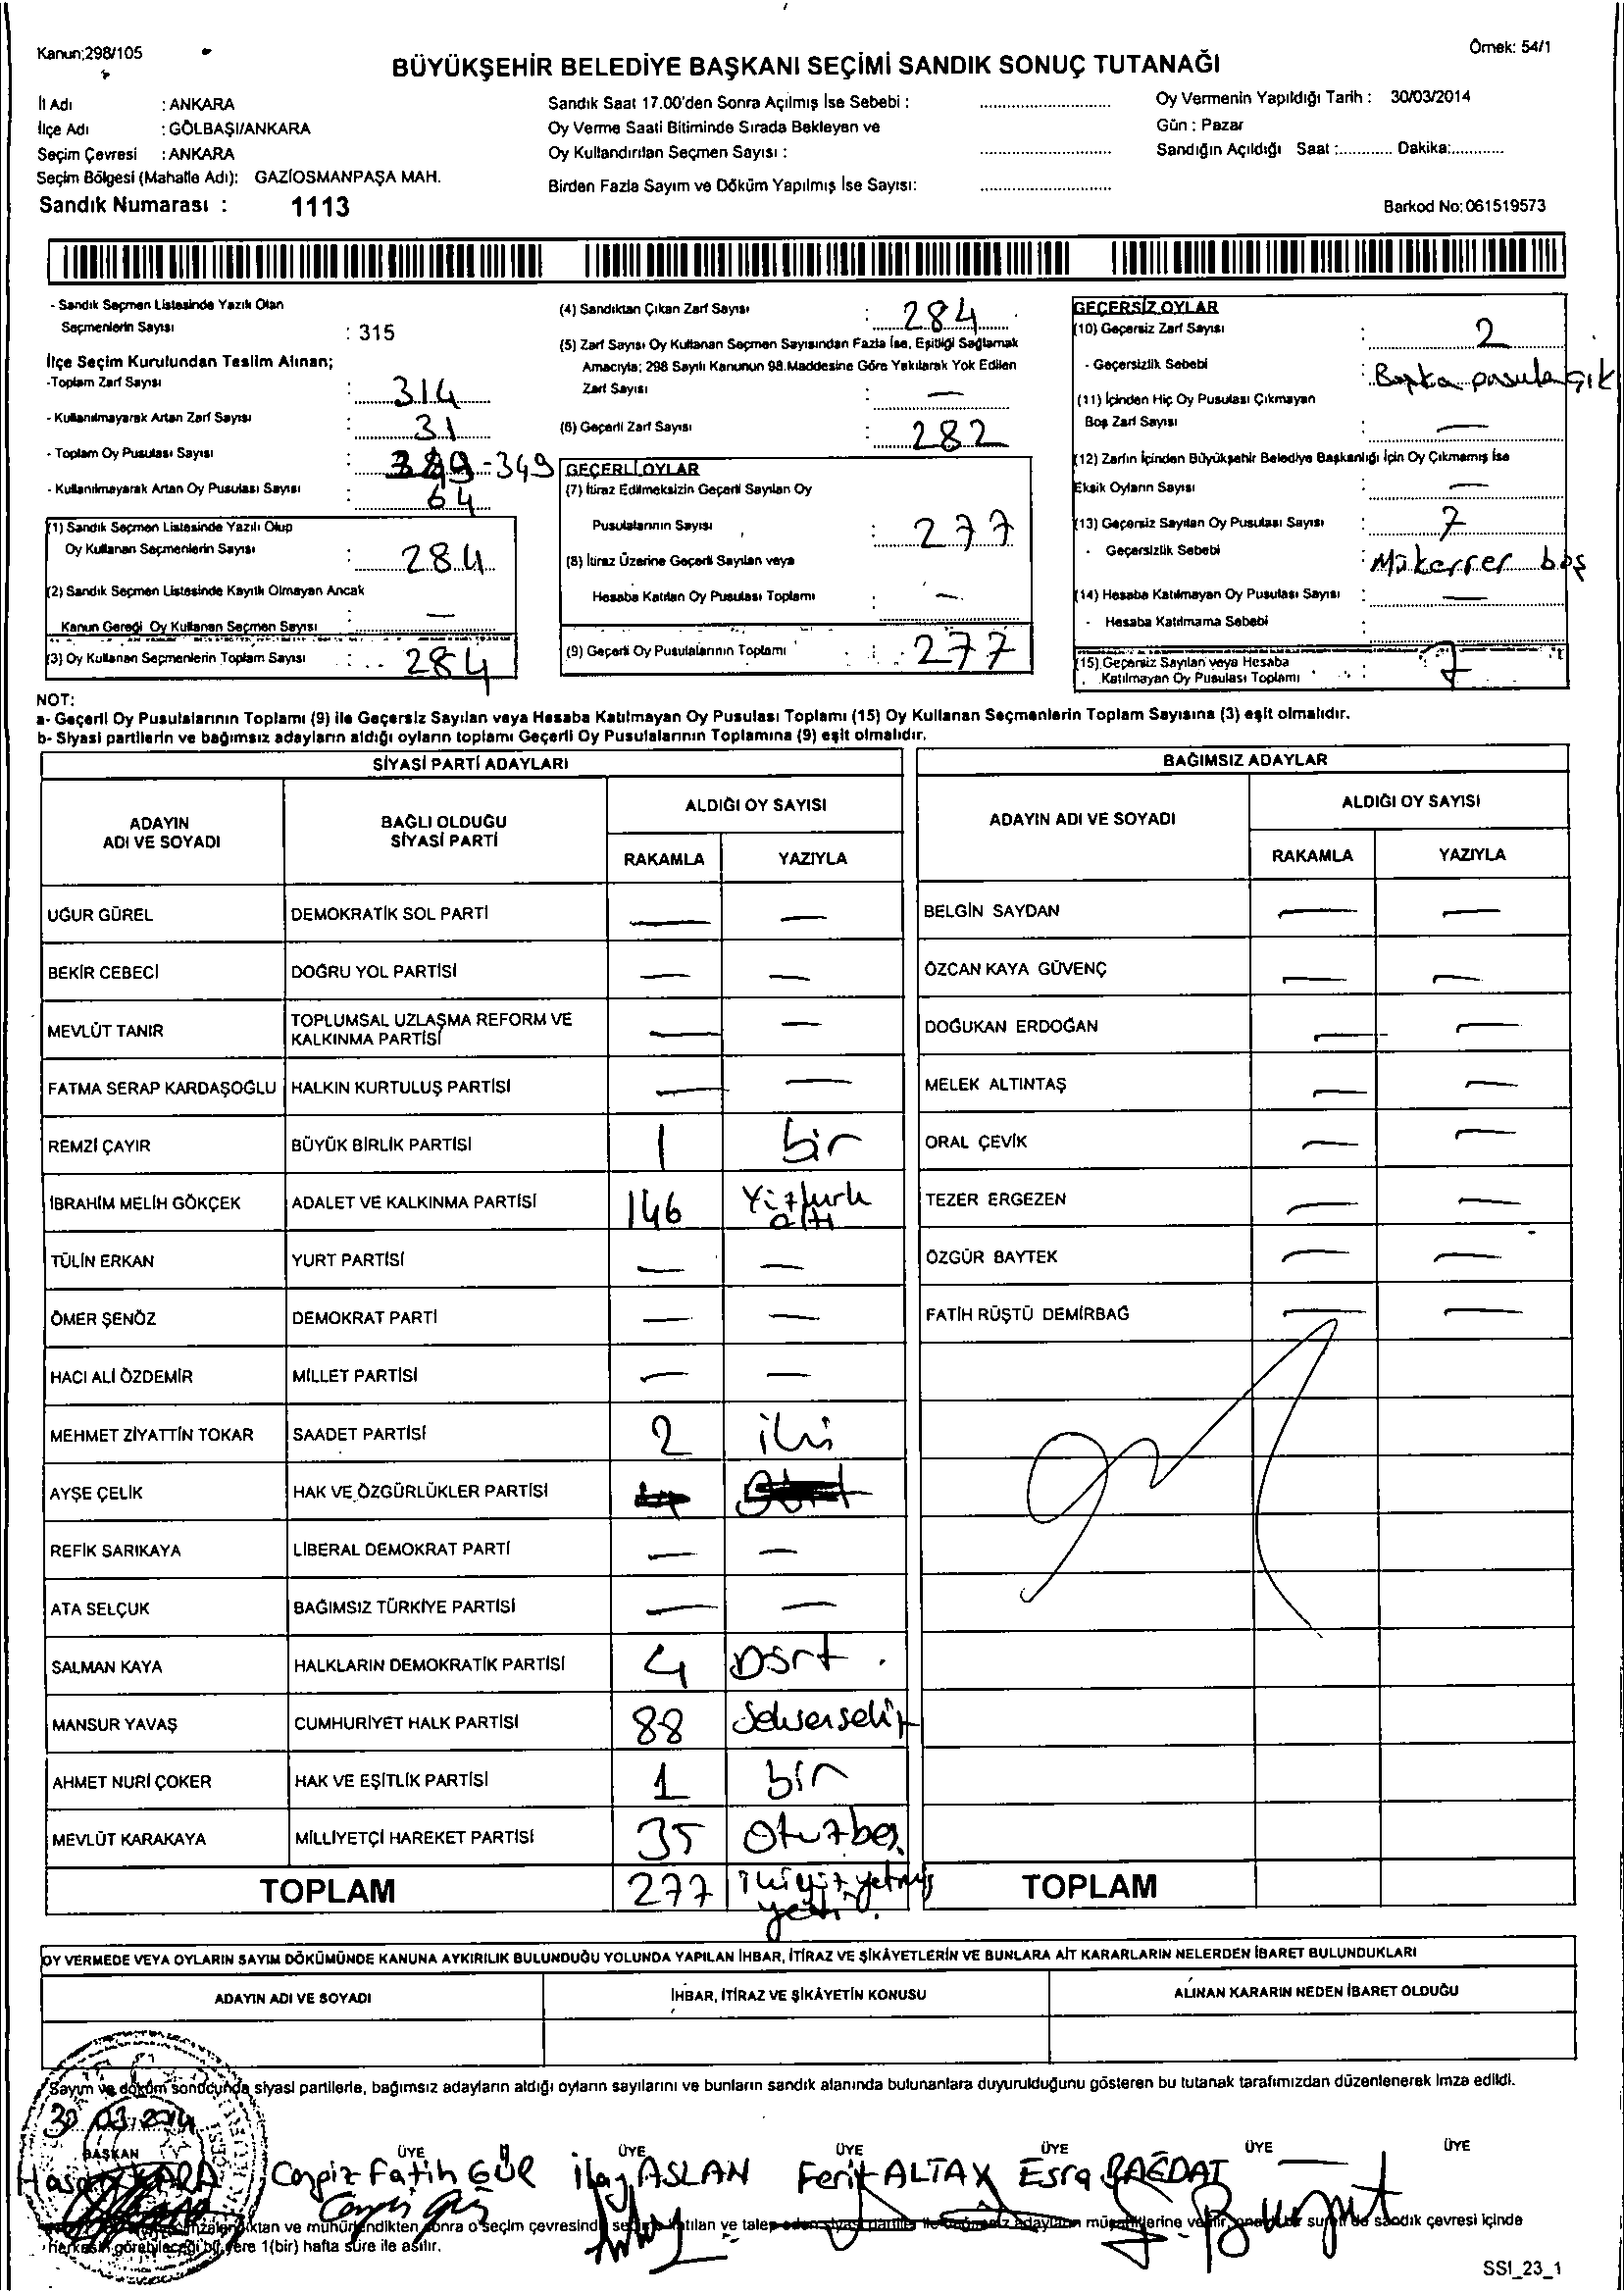 Kanun:298/105
Örnek: 54/1
BÜYÜKŞEHİR BELEDİYE BAŞKANI SEÇİMİ SANDIK SONUÇ TUTANAĞI
İl Adı : ANKARA
İlçe Adı : GÖLBAŞI/ANKARA
Seçim Çevresi : ANKARA
Seçim Bölgesi (Mahalle Adı): GAZİOSMANPAŞA MAH.
Sandık Numarası : 1113
Sandık Saat 17.00'den Sonra Açılmış İse Sebebi :
Oy Verme Saati Bitiminde Sırada Bekleyen ve
Oy Kullandırılan Seçmen Sayısı :
Birden Fazla Sayım ve Döküm Yapılmış İse Sayısı:
Oy Vermenin Yapıldığı Tarih : 30/03/2014
Gün : Pazar
Sandığın Açıldığı Saat :............ Dakika:............
Barkod No: 061519573
- Sandık Seçmen Listesinde Yazılı Olan
Seçmenlerin Sayısı : 315
İlçe Seçim Kurulundan Teslim Alınan;
-Toplam Zarf Sayısı : 314
- Kullanılmayarak Artan Zarf Sayısı : 31
- Toplam Oy Pusulası Sayısı : 349-349
- Kullanılmayarak Artan Oy Pusulası Sayısı : 64
(1) Sandık Seçmen Listesinde Yazılı Olup
Oy Kullanan Seçmenlerin Sayısı : 284
(2) Sandık Seçmen Listesinde Kayıtlı Olmayan Ancak
Kanun Gereği Oy Kullanan Seçmen Sayısı : —
(3) Oy Kullanan Seçmenlerin Toplam Sayısı : 284
(4) Sandıktan Çıkan Zarf Sayısı : 284
(5) Zarf Sayısı Oy Kullanan Seçmen Sayısından Fazla İse, Eşitliği Sağlamak
Amacıyla; 298 Sayılı Kanunun 98.Maddesine Göre Yakılarak Yok Edilen
Zarf Sayısı : —
(6) Geçerli Zarf Sayısı : 282
GEÇERLİ OYLAR
(7) İtiraz Edilmeksizin Geçerli Sayılan Oy
Pusulalarının Sayısı : 277
(8) İtiraz Üzerine Geçerli Sayılan veya
Hesaba Katılan Oy Pusulası Toplamı : —
(9) Geçerli Oy Pusulalarının Toplamı : 277
GEÇERSİZ OYLAR
(10) Geçersiz Zarf Sayısı : 2
- Geçersizlik Sebebi : Başka pusula çık
(11) İçinden Hiç Oy Pusulası Çıkmayan
Boş Zarf Sayısı : —
(12) Zarfın İçinden Büyükşehir Belediye Başkanlığı İçin Oy Çıkmamış İse
Eksik Oyların Sayısı : —
(13) Geçersiz Sayılan Oy Pusulası Sayısı : 7
- Geçersizlik Sebebi : Mükerrer boş
(14) Hesaba Katılmayan Oy Pusulası Sayısı : —
- Hesaba Katılmama Sebebi :
(15) Geçersiz Sayılan veya Hesaba
Katılmayan Oy Pusulası Toplamı : 7
NOT:
a- Geçerli Oy Pusulalarının Toplamı (9) ile Geçersiz Sayılan veya Hesaba Katılmayan Oy Pusulası Toplamı (15) Oy Kullanan Seçmenlerin Toplam Sayısına (3) eşit olmalıdır.
b- Siyasi partilerin ve bağımsız adayların aldığı oyların toplamı Geçerli Oy Pusulalarının Toplamına (9) eşit olmalıdır.
SİYASİ PARTİ ADAYLARI
ADAYIN
ADI VE SOYADI
BAĞLI OLDUĞU
SİYASİ PARTİ
ALDIĞI OY SAYISI
RAKAMLA YAZIYLA
UĞUR GÜREL DEMOKRATİK SOL PARTİ — —
BEKİR CEBECİ DOĞRU YOL PARTİSİ — —
MEVLÜT TANIR TOPLUMSAL UZLAŞMA REFORM VE
KALKINMA PARTİSİ — —
FATMA SERAP KARDAŞOĞLU HALKIN KURTULUŞ PARTİSİ — —
REMZİ ÇAYIR BÜYÜK BİRLİK PARTİSİ 1 bir
İBRAHİM MELİH GÖKÇEK ADALET VE KALKINMA PARTİSİ 146 Yüzkırk
altı
TÜLİN ERKAN YURT PARTİSİ — —
ÖMER ŞENÖZ DEMOKRAT PARTİ — —
HACI ALİ ÖZDEMİR MİLLET PARTİSİ — —
MEHMET ZİYATTİN TOKAR SAADET PARTİSİ 2 iki
AYŞE ÇELİK HAK VE ÖZGÜRLÜKLER PARTİSİ
REFİK SARIKAYA LİBERAL DEMOKRAT PARTİ — —
ATA SELÇUK BAĞIMSIZ TÜRKİYE PARTİSİ — —
SALMAN KAYA HALKLARIN DEMOKRATİK PARTİSİ 4 Dört
MANSUR YAVAŞ CUMHURİYET HALK PARTİSİ 88 Seksensekiz
AHMET NURİ ÇOKER HAK VE EŞİTLİK PARTİSİ 1 bir
MEVLÜT KARAKAYA MİLLİYETÇİ HAREKET PARTİSİ 35 Otuzbeş
TOPLAM 277 ikiyüzyetmiş
yedi.
BAĞIMSIZ ADAYLAR
ADAYIN ADI VE SOYADI
ALDIĞI OY SAYISI
RAKAMLA YAZIYLA
BELGİN SAYDAN — —
ÖZCAN KAYA GÜVENÇ — —
DOĞUKAN ERDOĞAN — —
MELEK ALTINTAŞ — —
ORAL ÇEVİK — —
TEZER ERGEZEN — —
ÖZGÜR BAYTEK — —
FATİH RÜŞTÜ DEMİRBAĞ — —
TOPLAM
OY VERMEDE VEYA OYLARIN SAYIM DÖKÜMÜNDE KANUNA AYKIRILIK BULUNDUĞU YOLUNDA YAPILAN İHBAR, İTİRAZ VE ŞİKÂYETLERİN VE BUNLARA AİT KARARLARIN NELERDEN İBARET BULUNDUKLARI
ADAYIN ADI VE SOYADI İHBAR, İTİRAZ VE ŞİKÂYETİN KONUSU ALINAN KARARIN NEDEN İBARET OLDUĞU
Sayım ve döküm sonucunda siyasi partilerle, bağımsız adayların aldığı oyların sayılarını ve bunların sandık alanında bulunanlara duyurulduğunu gösteren bu tutanak tarafımızdan düzenlenerek imza edildi.
30.03.2014
BAŞKAN ÜYE ÜYE ÜYE ÜYE ÜYE ÜYE
Hasan KARA Cengiz Fatih GÜR İlaş ASLAN Ferit ALTAY Esra BAĞDAT —
ve mühürlendikten sonra o seçim çevresinde seçime katılan ve talep eden siyasi partiler ile bağımsız adayların müşahitlerine verilir, onaylı bir sureti de sandık çevresi içinde
herkesin görebileceği bir yere 1(bir) hafta süre ile asılır.
SSI_23_1